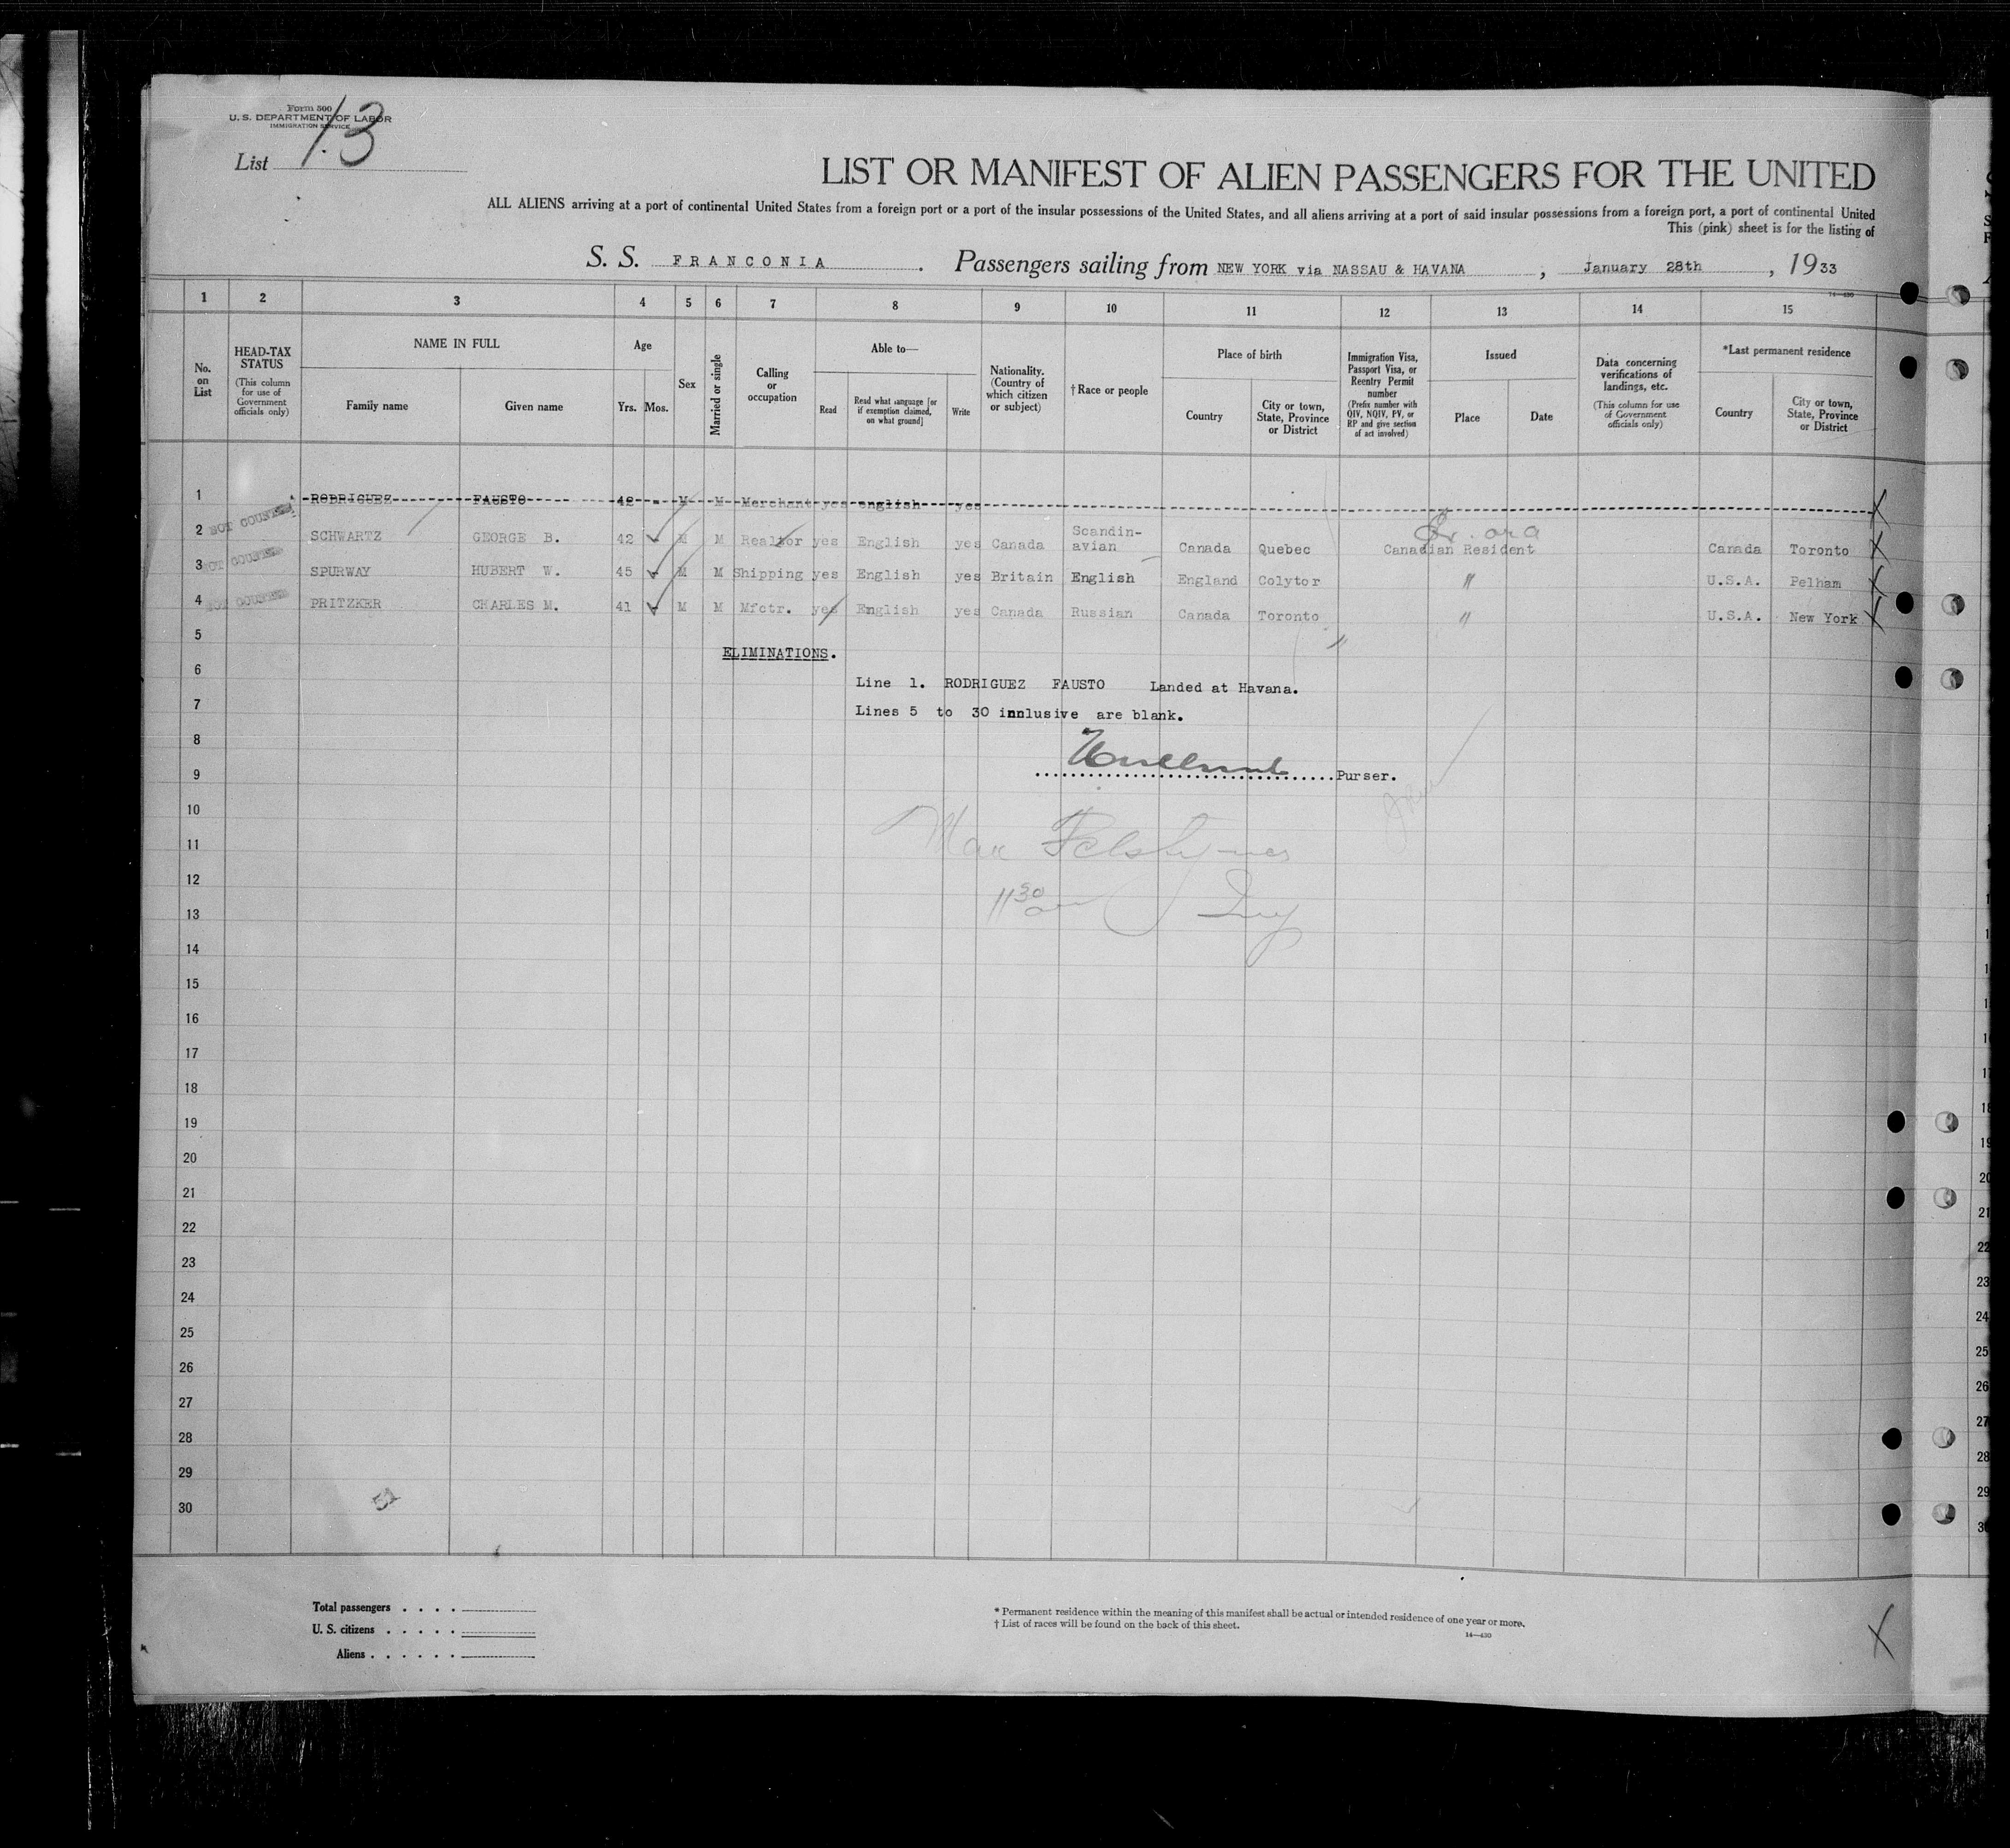 Form 500
U. S. DEPARTMENT OF LABOR
IMMIGRATION SERVICE
List 13
LIST OR MANIFEST OF ALIEN PASSENGERS FOR THE UNITED
ALL ALIENS arriving at a port of continental United States from a foreign port or a port of the insular possessions of the United States, and all aliens arriving at a port of said insular possessions from a foreign port, a port of continental United
This (pink) sheet is for the listing of
S. S. FRANCONIA . Passengers sailing from NEW YORK via NASSAU & HAVANA , January 28th , 1933
14—430
1 2 3 4 5 6 7 8 9 10 11 12 13 14 15
No. on List
HEAD-TAX STATUS
(This column for use of Government officials only)
NAME IN FULL
Family name
Given name
Age
Yrs. Mos.
Sex
Married or single
Calling or occupation
Able to—
Read
Read what language [or if exemption claimed, on what ground]
Write
Nationality. (Country of which citizen or subject)
†Race or people
Place of birth
Country
City or town, State, Province or District
Immigration Visa, Passport Visa, or Reentry Permit number
(Prefix number with QIV, NQIV, PV, or RP and give section of act involved)
Issued
Place
Date
Data concerning verifications of landings, etc.
(This column for use of Government officials only)
*Last permanent residence
Country
City or town, State, Province or District
1 RODRIGUEZ FAUSTO 42 - M M Merchant yes english yes
2 NOT COUNTED SCHWARTZ GEORGE B. 42 M M Realtor yes English yes Canada Scandin-avian Canada Quebec Canadian Resident Canada Toronto
3 NOT COUNTED SPURWAY HUBERT W. 45 M M Shipping yes English yes Britain English England Colytor " U.S.A. Pelham
4 NOT COUNTED PRITZKER CHARLES M. 41 M M Mfctr. yes English yes Canada Russian Canada Toronto " U.S.A. New York
5
ELIMINATIONS.
6 Line 1. RODRIGUEZ FAUSTO Landed at Havana.
7 Lines 5 to 30 innlusive are blank.
8
9 Purser.
10
11 Max
12
13 11 30
14
15
16
17
18
19
20
21
22
23
24
25
26
27
28
29
30
52
Total passengers . . . .
U. S. citizens . . . . .
Aliens . . . . . .
* Permanent residence within the meaning of this manifest shall be actual or intended residence of one year or more.
† List of races will be found on the back of this sheet.
14—430
18
19
20
21
22
23
24
25
26
27
28
29